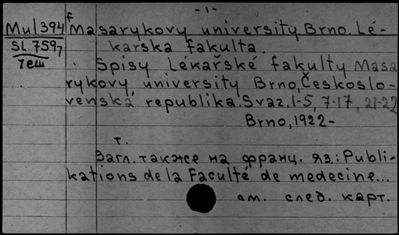 -1-
Mul 394
SL 759₇
Чеш
f
Masarykovy university Brno. Lé-
karska fakulta.
Spisy Lékařské fakulty Masa
rykovy university Brno, Českoslo-
venská republika. Svaz. 1-5, 7-17, 21-22
Brno, 1922-
т.
Загл. также на франц. яз.: Publi-
kations de la Faculté de medecine...
см. след. карт.